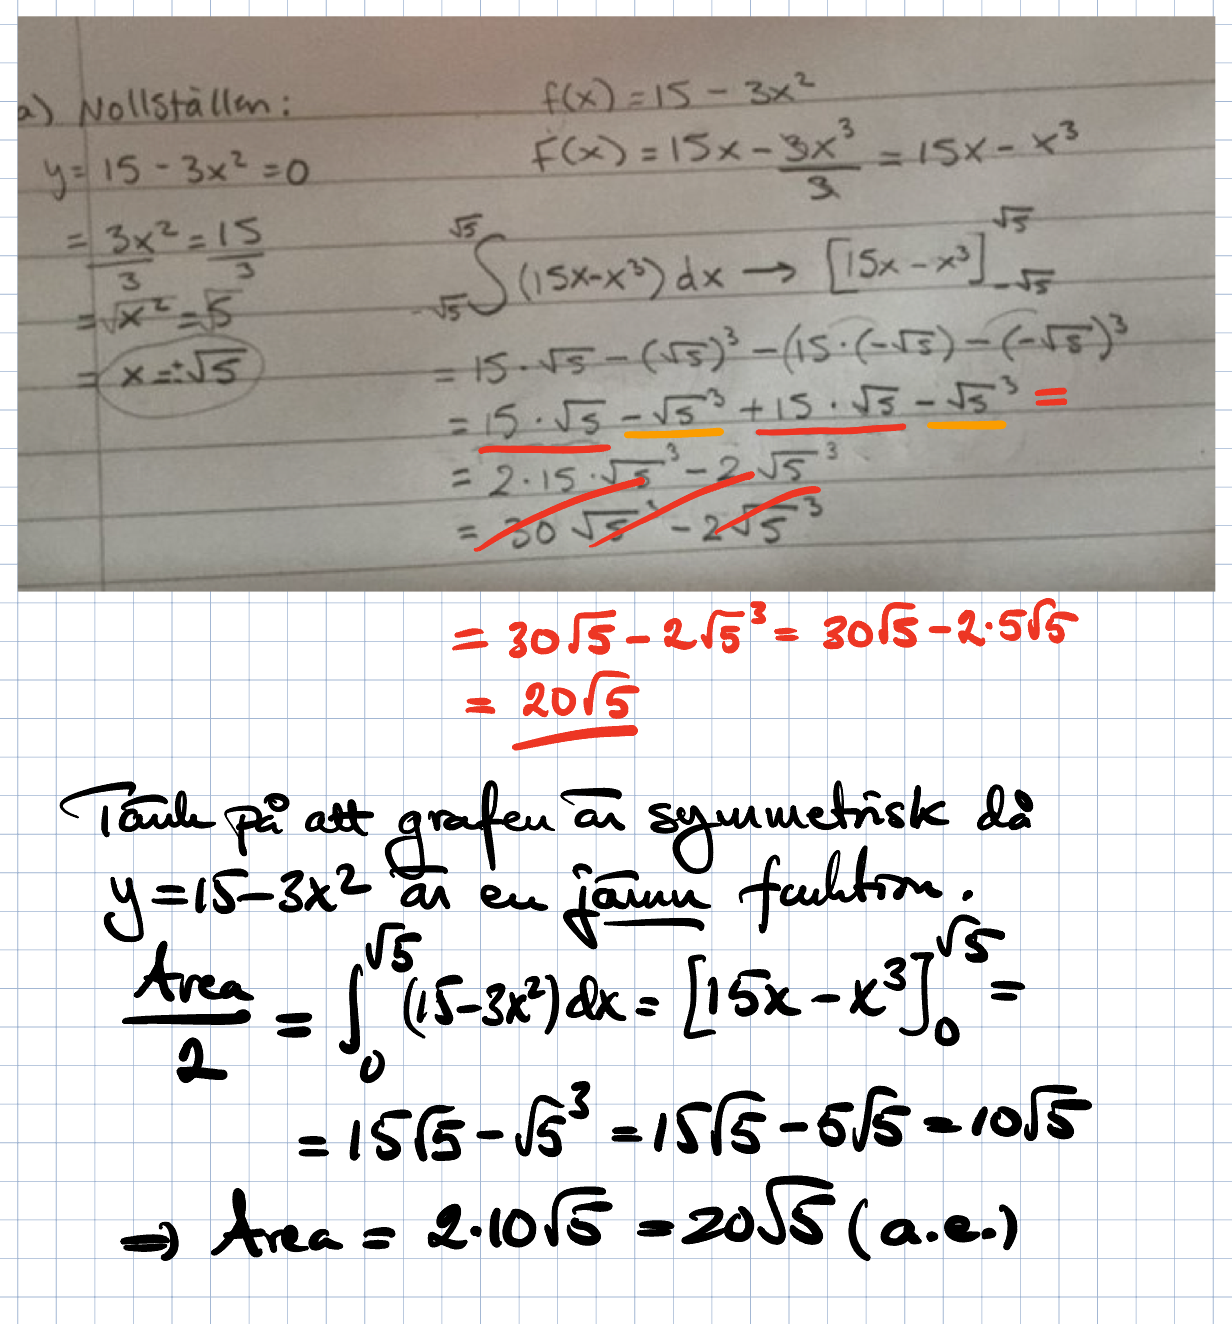 a) Nollställen:
y = 15 - 3x² = 0
= 3x²/3 = 15/3
= √x² = √5
= x = ±√5
f(x) = 15 - 3x²
F(x) = 15x - 3x³/3 = 15x - x³
∫_{-√5}^{√5} (15x-x³) dx → [15x - x³]_{-√5}^{√5}
= 15·√5 - (√5)³ - (15·(-√5) - (-√5)³
= 15·√5 - √5³ + 15·√5 - √5³ =
= 2·15·√5³ - 2 √5³
= 30 √5³ - 2√5³
= 30√5 - 2√5³ = 30√5 - 2·5√5
= 20√5
Tänk på att grafen är symmetrisk då
y = 15-3x² är en jämn funktion.
Area/2 = ∫_0^{√5} (15-3x²)dx = [15x - x³]_0^{√5} =
= 15√5 - √5³ = 15√5 - 5√5 = 10√5
⇒ Area = 2·10√5 = 20√5 (a.e.)